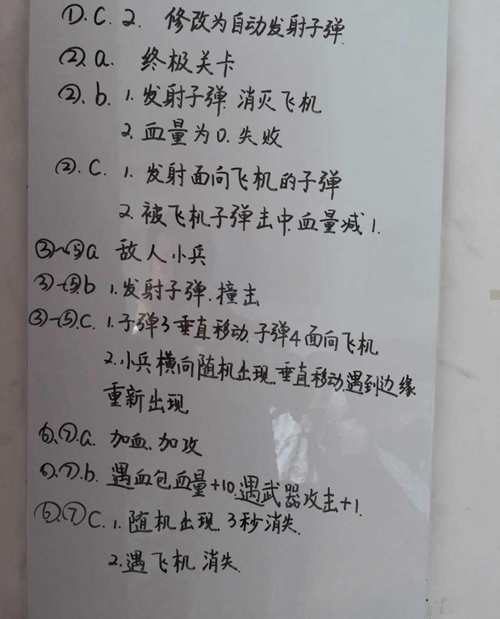 ①.C.2. 修改为自动发射子弹.
②.a. 终极关卡
②.b. 1.发射子弹.消灭飞机
2.血量为0.失败
②.C. 1.发射面向飞机的子弹
2.被飞机子弹击中.血量减1.
③-⑤a 敌人小兵
③-⑤b 1.发射子弹.撞击
③-⑤.C. 1.子弹3垂直移动.子弹4面向飞机
2.小兵横向随机出现.垂直移动.遇到边缘
重新出现
⑥.⑦.a. 加血.加攻
⑥.⑦.b. 遇血包血量+10.遇武器攻击+1.
⑥.⑦C. 1.随机出现.3秒消失.
2.遇飞机消失.